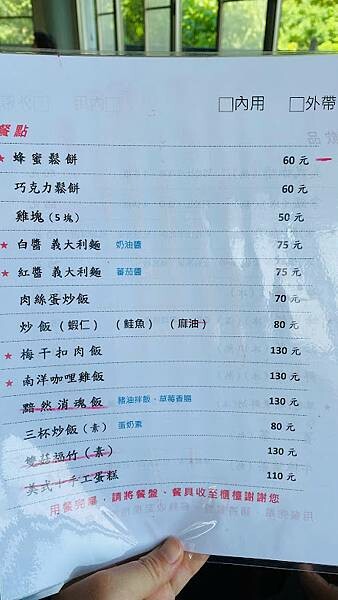 □內用 □外帶
餐點
★ 蜂蜜鬆餅 60 元
巧克力鬆餅 60 元
雞塊(5塊) 50 元
★ 白醬 義大利麵 奶油醬 75 元
★ 紅醬 義大利麵 蕃茄醬 75 元
肉絲蛋炒飯 70 元
炒飯(蝦仁) (鮭魚) (麻油) 80 元
★ 梅干扣肉飯 130 元
★ 南洋咖哩雞飯 130 元
黯然消魂飯 豬油拌飯、草莓香腸 130 元
三杯炒飯(素) 蛋奶素 80 元
雙菇福竹(素) 130 元
美式十手工蛋糕 110 元
用餐完畢,請將餐盤、餐具收至櫃檯謝謝您